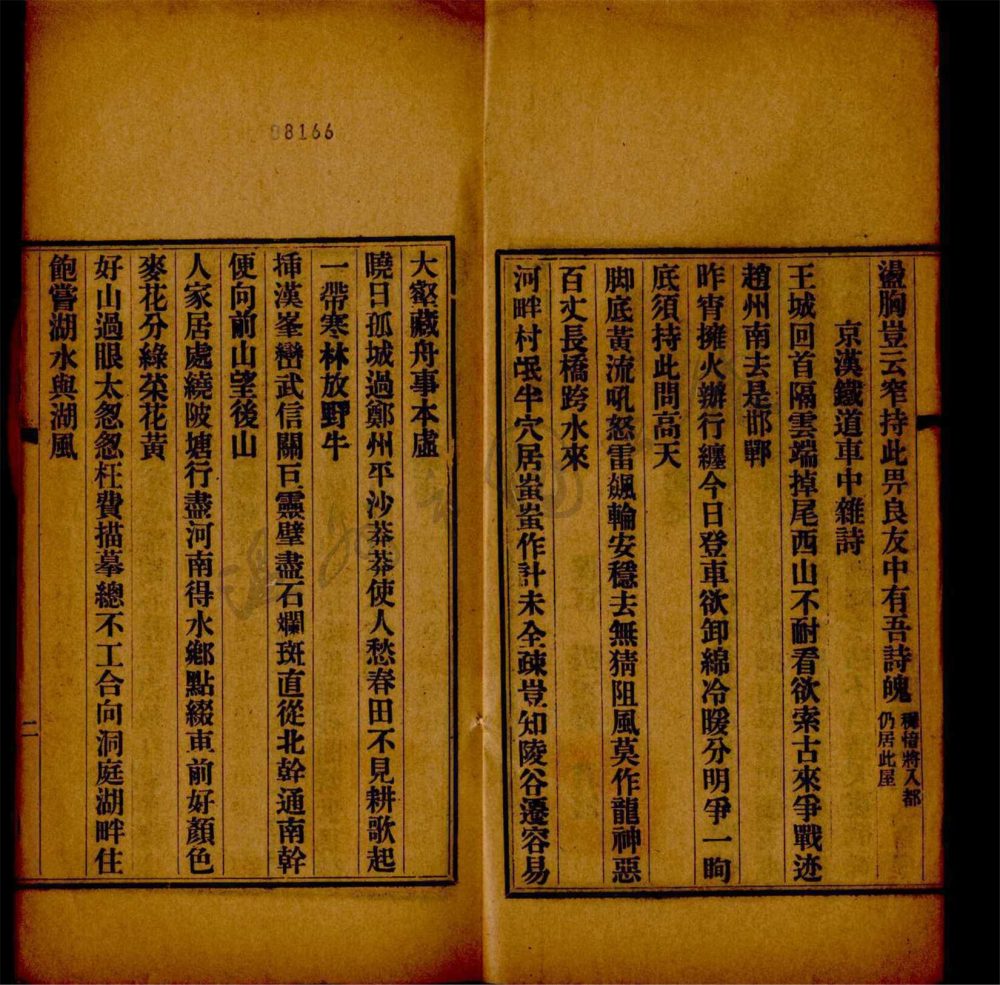 88166
盪胸豈云窄持此畀良友中有吾詩魄
稺愔將入都
仍居此屋
京漢鐵道車中雜詩
王城回首隔雲端掉尾西山不耐看欲索古來爭戰迹
趙州南去是邯鄲
昨宵擁火辦行纏今日登車欲卸綿冷暖分明爭一晌
底須持此問高天
脚底黃流吼怒雷飆輪安穩去無猜阻風莫作龍神惡
百丈長橋跨水來
河畔村氓半穴居蚩蚩作計未全疎豈知陵谷遷容易
大壑藏舟事本虛
曉日孤城過鄭州平沙莽莽使人愁春田不見耕歌起
一帶寒林放野牛
揷漢峯巒武信關巨靈壁盡石斕斑直從北幹通南幹
便向前山望後山
人家居處繞陂塘行盡河南得水鄉點綴車前好顏色
麥花分綠菜花黃
好山過眼太怱怱枉費描摹總不工合向洞庭湖畔住
飽嘗湖水與湖風
二